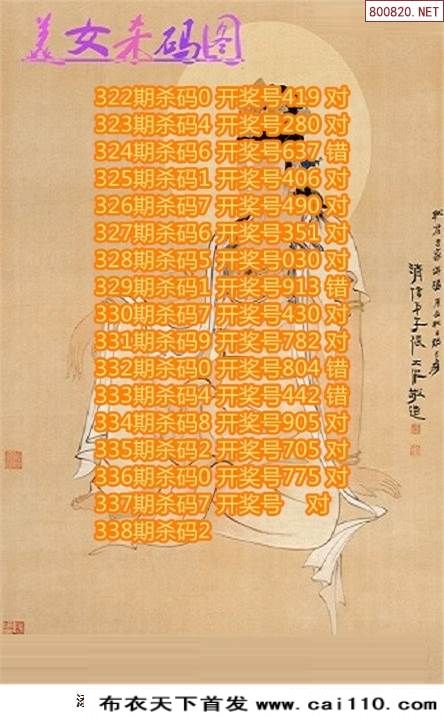 800820.NET
美女杀码图
322期杀码0 开奖号419 对
323期杀码4 开奖号280 对
324期杀码6 开奖号637 错
325期杀码1 开奖号406 对
326期杀码7 开奖号490 对
327期杀码6 开奖号351 对
328期杀码5 开奖号030 对
329期杀码1 开奖号913 错
330期杀码7 开奖号430 对
331期杀码9 开奖号782 对
332期杀码0 开奖号804 错
333期杀码4 开奖号442 错
334期杀码8 开奖号905 对
335期杀码2 开奖号705 对
336期杀码0 开奖号775 对
337期杀码7 开奖号 对
338期杀码2
布衣天下首发 www.cai110.com